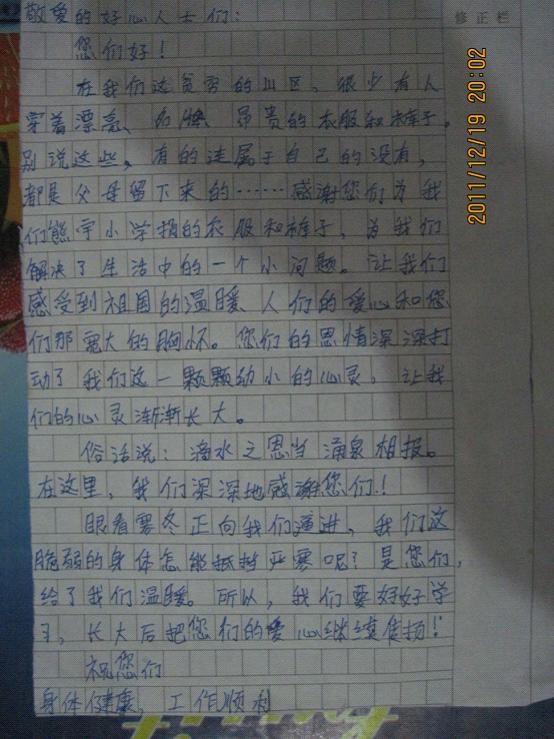 敬爱的好心人士们：
修正栏
您们好！
在我们这贫穷的山区，很少有人
穿着漂亮、名牌、昂贵的衣服和裤子，
别说这些，有的连属于自己的没有，
都是父母留下来的……感谢您们为我
们熊宇小学捐的衣服和裤子，为我们
解决了生活中的一个小问题。让我们
感受到祖国的温暖、人们的爱心和您
们那宽大的胸怀。您们的恩情深深打
动了我们这一颗颗幼小的心灵，让我
们的心灵渐渐长大。
俗话说：滴水之恩当涌泉相报。
在这里，我们深深地感谢您们！
眼看寒冬正向我们逼进，我们这
脆弱的身体怎能抵挡严寒呢？是您们，
给了我们温暖。所以，我们要好好学
习，长大后把您们的爱心继续发扬！
祝您们
身体健康，工作顺利
2011/12/19 20:02